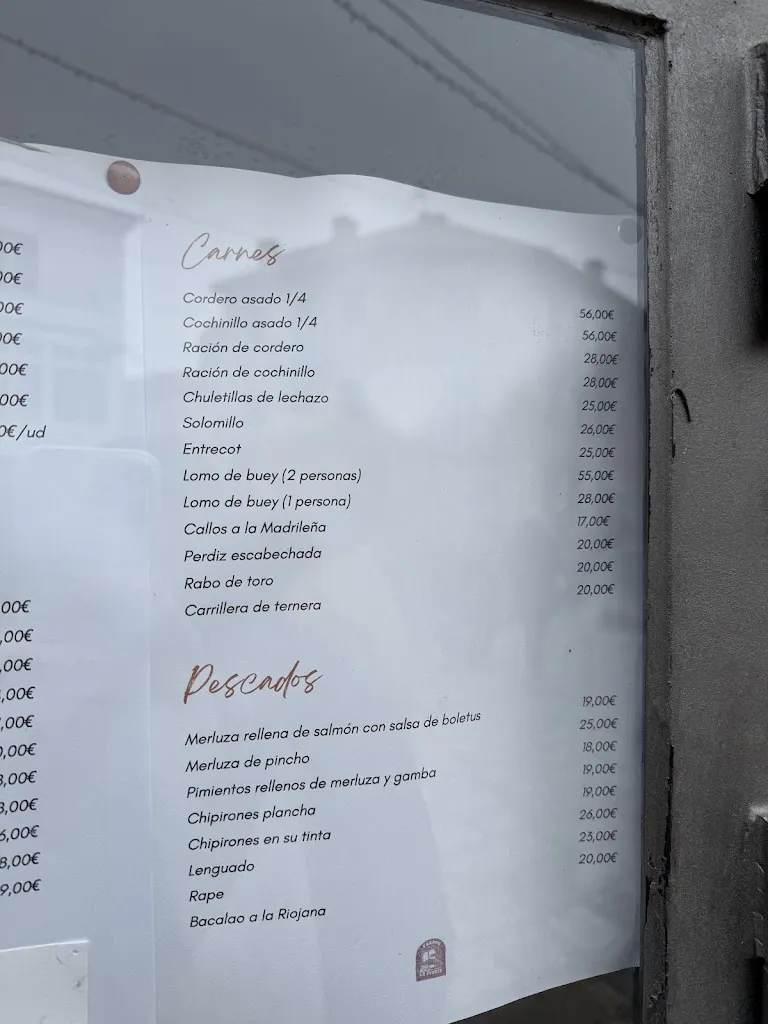 00€
00€
00€
00€
00€
00€
0€/ud
00€
,00€
,00€
,00€
,00€
0,00€
3,00€
3,00€
6,00€
8,00€
9,00€
Carnes
Cordero asado 1/4 56,00€
Cochinillo asado 1/4 56,00€
Ración de cordero 28,00€
Ración de cochinillo 28,00€
Chuletillas de lechazo 25,00€
Solomillo 26,00€
Entrecot 25,00€
Lomo de buey (2 personas) 55,00€
Lomo de buey (1 persona) 28,00€
Callos a la Madrileña 17,00€
Perdiz escabechada 20,00€
Rabo de toro 20,00€
Carrillera de ternera 20,00€
Pescados
Merluza rellena de salmón con salsa de boletus 19,00€
Merluza de pincho 25,00€
Pimientos rellenos de merluza y gamba 18,00€
Chipirones plancha 19,00€
Chipirones en su tinta 19,00€
Lenguado 26,00€
Rape 23,00€
Bacalao a la Riojana 20,00€